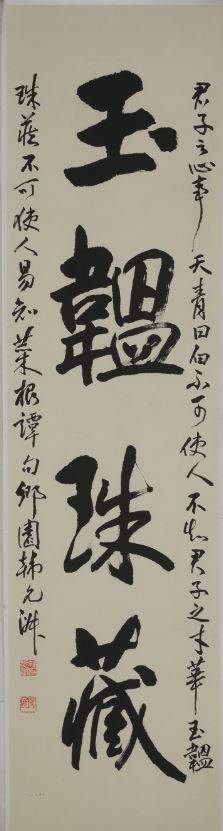 君子之心事天青日白不可使人不知君子之才華玉韞
玉韞珠藏
珠藏不可使人易知菜根譚句鄉園韓允